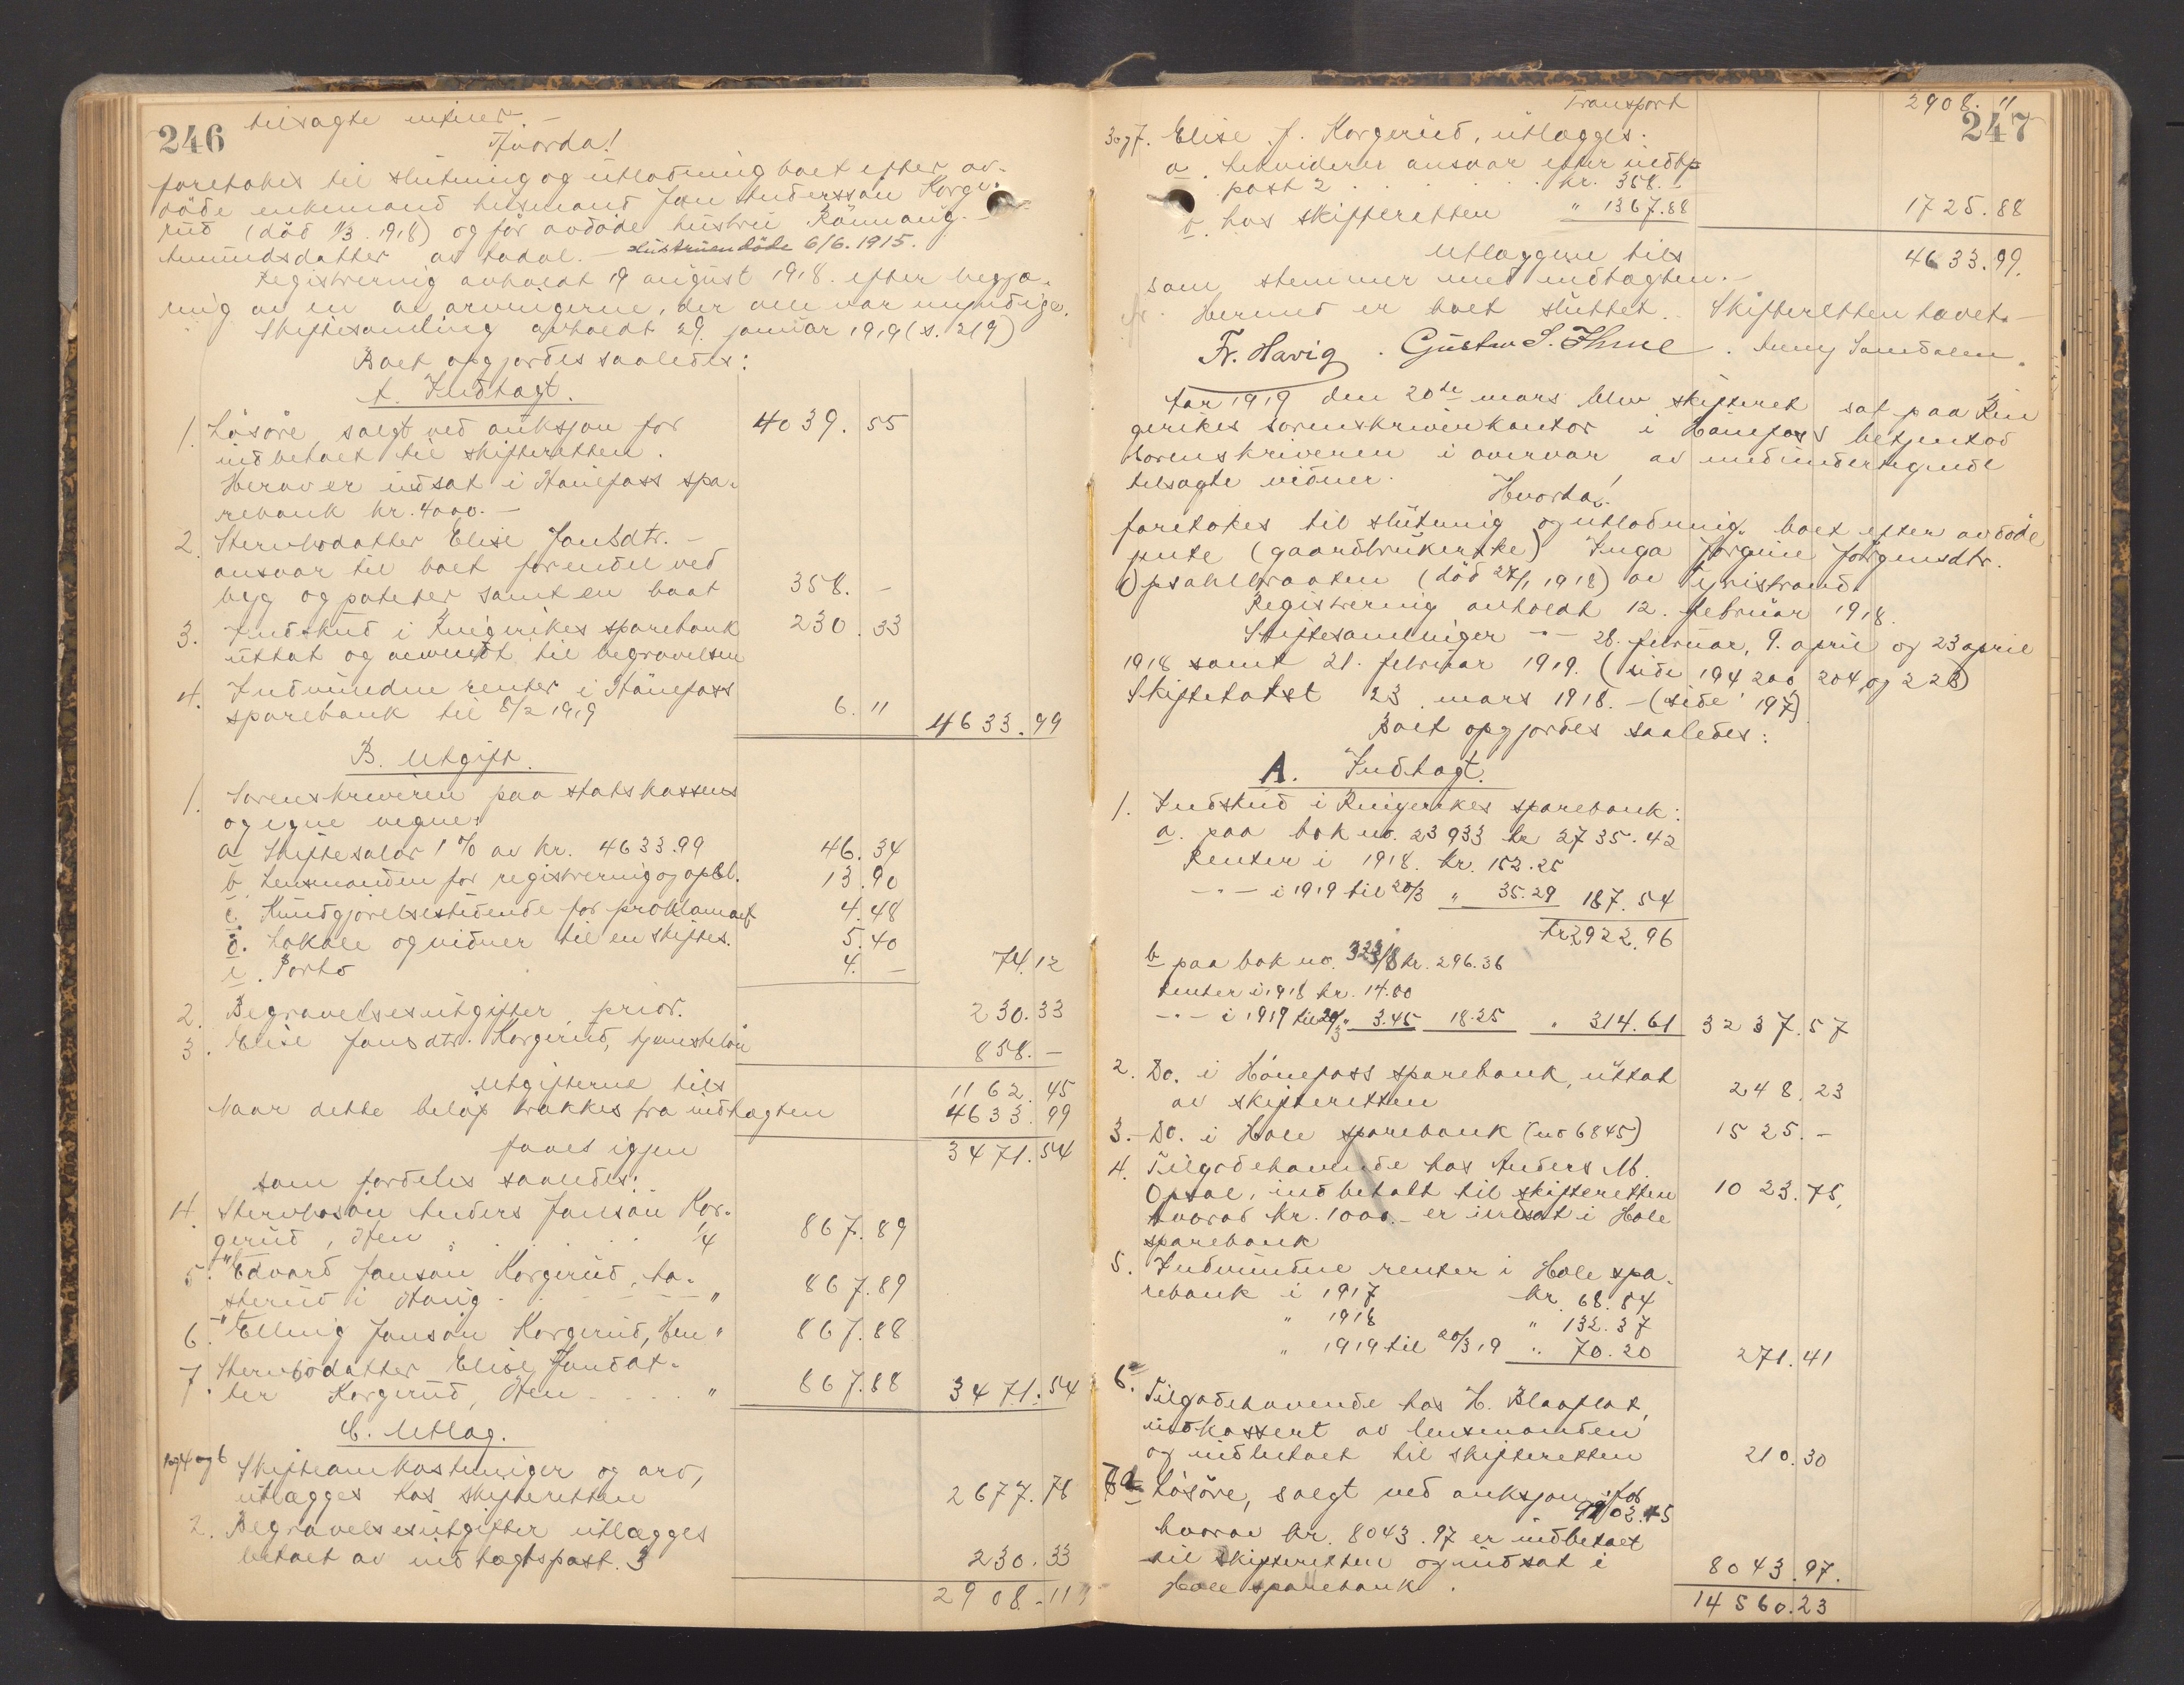 246
tilsagte vidner. —
Hvorda!
foretokes til slutning og utlodning boet efter av-
döde enkemand husmand Jon Anderssön Korge-
rud (död 1/3 1918) og för avdöde hustru Rönnaug
Amundsdatter av Aadal. — Hustruen döde 6/6. 1915.
Registrering avholdt 19 august 1918. efter begjæ-
ring av en av arvingerne, der alle var myndige.
Skiftesamling avholdt 29. januar 1919 (s. 219)
Boet opgjordes saaledes:
A. Indtægt.
1. Lösöre, solgt ved auksjon for 4039.55
indbetalt til skifteretten.
Herav er indsat i Hönefoss spa-
rebank kr. 4000.—
2. Stervbodatter Elise Jonsdtr.
ansvar til boet forundel ved
byg og poteter samt en baat 358. —
3. Indskud i Ringerikes sparebank 230.33
uttat og anvendt til begravelsen
4. Indvundne renter i Hönefoss
sparebank til 5/2 1919 6.11 4633.99
B. Utgift.
1. Sorenskriveren paa statskassens
og egne vegne:
a. Skiftesalær 1% av kr. 4633.99 46.34
b. Lensmanden for registrering og opbl. 13.90
c. Kundgjörelsestidende for proklamaet 4.48
d. Lokale og vidner til en skiftes. 5.40
e. Porto 4. — 74.12
2. Begravelsesutgifter prior. 230.33
3. Elise Jonsdtr. Korgerud, tjenestelön 858. —
Utgifterne tils 1162.45
Naar dette belöp trækkes fra indtægten 4633.99
faaes igjen 3471.54
som fordeles saaledes:
4. Stervbosön Anders Jonsön Kor-
gerud, Hen . . . . 1/4 867.89
5. " Edvard Jonsön Korgerud, Ha-
sterud i Haug " 867.89
6. " Elling Jonsön Korgerud, Hen " 867.88
7. Stervbodatter Elise Jonsdat-
ter Korgerud, Hen " 867.88 3471.54
C. Utlæg.
1 og 4 og 6 Skifteomkostninger og arv,
utlægges hos skifteretten 2677.78
2. Begravelsesutgifter utlægges
betalt av indtægtspost. 3 230.33
2908.11
247
Transport 2908. 11
3 og 7. Elise J. Korgerud, utlægges:
a. Likviderer ansvar efter indtp
post 2 . . . . kr. 358. —
b. hos skifteretten " 1367.88 1725.88
Utlæggene tils 4633.99.
som stemmer med indtægten. —
Hermed er boet sluttet. Skifteretten hævet. —
Fr. Havig. Gustav S. Ihme. Anny Sandalen.
Aar 1919 den 20de mars blev skifteret sat paa Rin
gerikes sorenskriverkontor i Hönefoss betjent av
sorenskriveren i overvær av medundertegnede
tilsagte vidner.
Hvorda!
foretokes til slutning og utlodning boet efter avdöde
pike (gaardbrukerske) Inga Jörgine Jörgensdtr.
Opsahlbraaten (död 27/1 1918) av Tyristrand.
Registrering avholdt 12. februar 1918.
Skiftesamlinger —"— 28. februar, 9. april og 23 april
1918 samt 21. februar 1919. (side 194 200 204 og 228)
Skiftetakst 23. mars 1918. — (side 197)
Boet opgjordes saaledes:
A. Indtægt.
1. Indskud i Ringerikes sparebank:
a. paa bok no. 23933 kr 2735.42
Renter i 1918. kr. 152.25
—"— i 1919 til 20/3 " 35.29 187.54
kr. 2922.96
b paa bok no. 32318 kr. 296.36
Renter i 1918 kr. 14.80
—"— i 1919 til 20/3 " 3.45 18.25 " 314.61 3237.57
2. Do. i Hönefoss sparebank, uttat
av skifteretten 248.23
3. Do. i Hole sparebank (no 6845) 1525. —
4. Tilgodehavende hos Anders M.
Opsal, indbetalt til skifteretten 1023.75,
hvorav kr. 1000.— er indsat i Hole
sparebank
5. Indvundne renter i Hole spa-
rebank i 1917 kr. 68.84
" 1918 " 132.37
" 1919 til 20/3 19 " 70.20 271.41
6. Tilgodehavende hos H. Blaaflat,
indkassert av lensmanden
og indbetalt til skifteretten 210.30
7a Lösöre, solgt ved auksjon for
9102.45
hvorav kr. 8043.97 er indbetalt
til skifteretten og indsat i
Hole sparebank. 8043.97.
14560.23